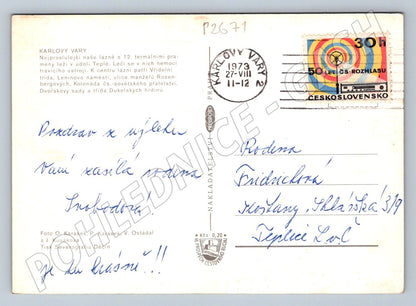 P2671
KARLOVY VARY
Nejproslulejší naše lázně s 12. termálními pra-
meny leží v údolí Teplé. Léčí se v nich nemoci
trávicího ústrojí. K centru lázní patří Vřídelní
třída, Leninovo náměstí, ulice manželů Rosen-
bergových, Kolonáda čs.-sovětského přátelství,
Dvořákovy sady a třída Dukelských hrdinů.
KARLOVY VARY 2
1973
27-VIII
11-12
30h
50 LET ČS. ROZHLASU
ČESKOSLOVENSKO
Pozdrav z výletu
Vám zasílá rodina
Svobodová
je tu krásně!!
Rodina
Fridrichová
Košťany, Sklářská 3/9
Teplice L. v Č
NAKLADATELSTVÍ
PRAHA
Kčs 0,20
Foto O. Karásek, P. Kučera, V. Ostádal
a J. Korzaková
Tisk Severografia Děčín
POHLEDNICE-CZECH